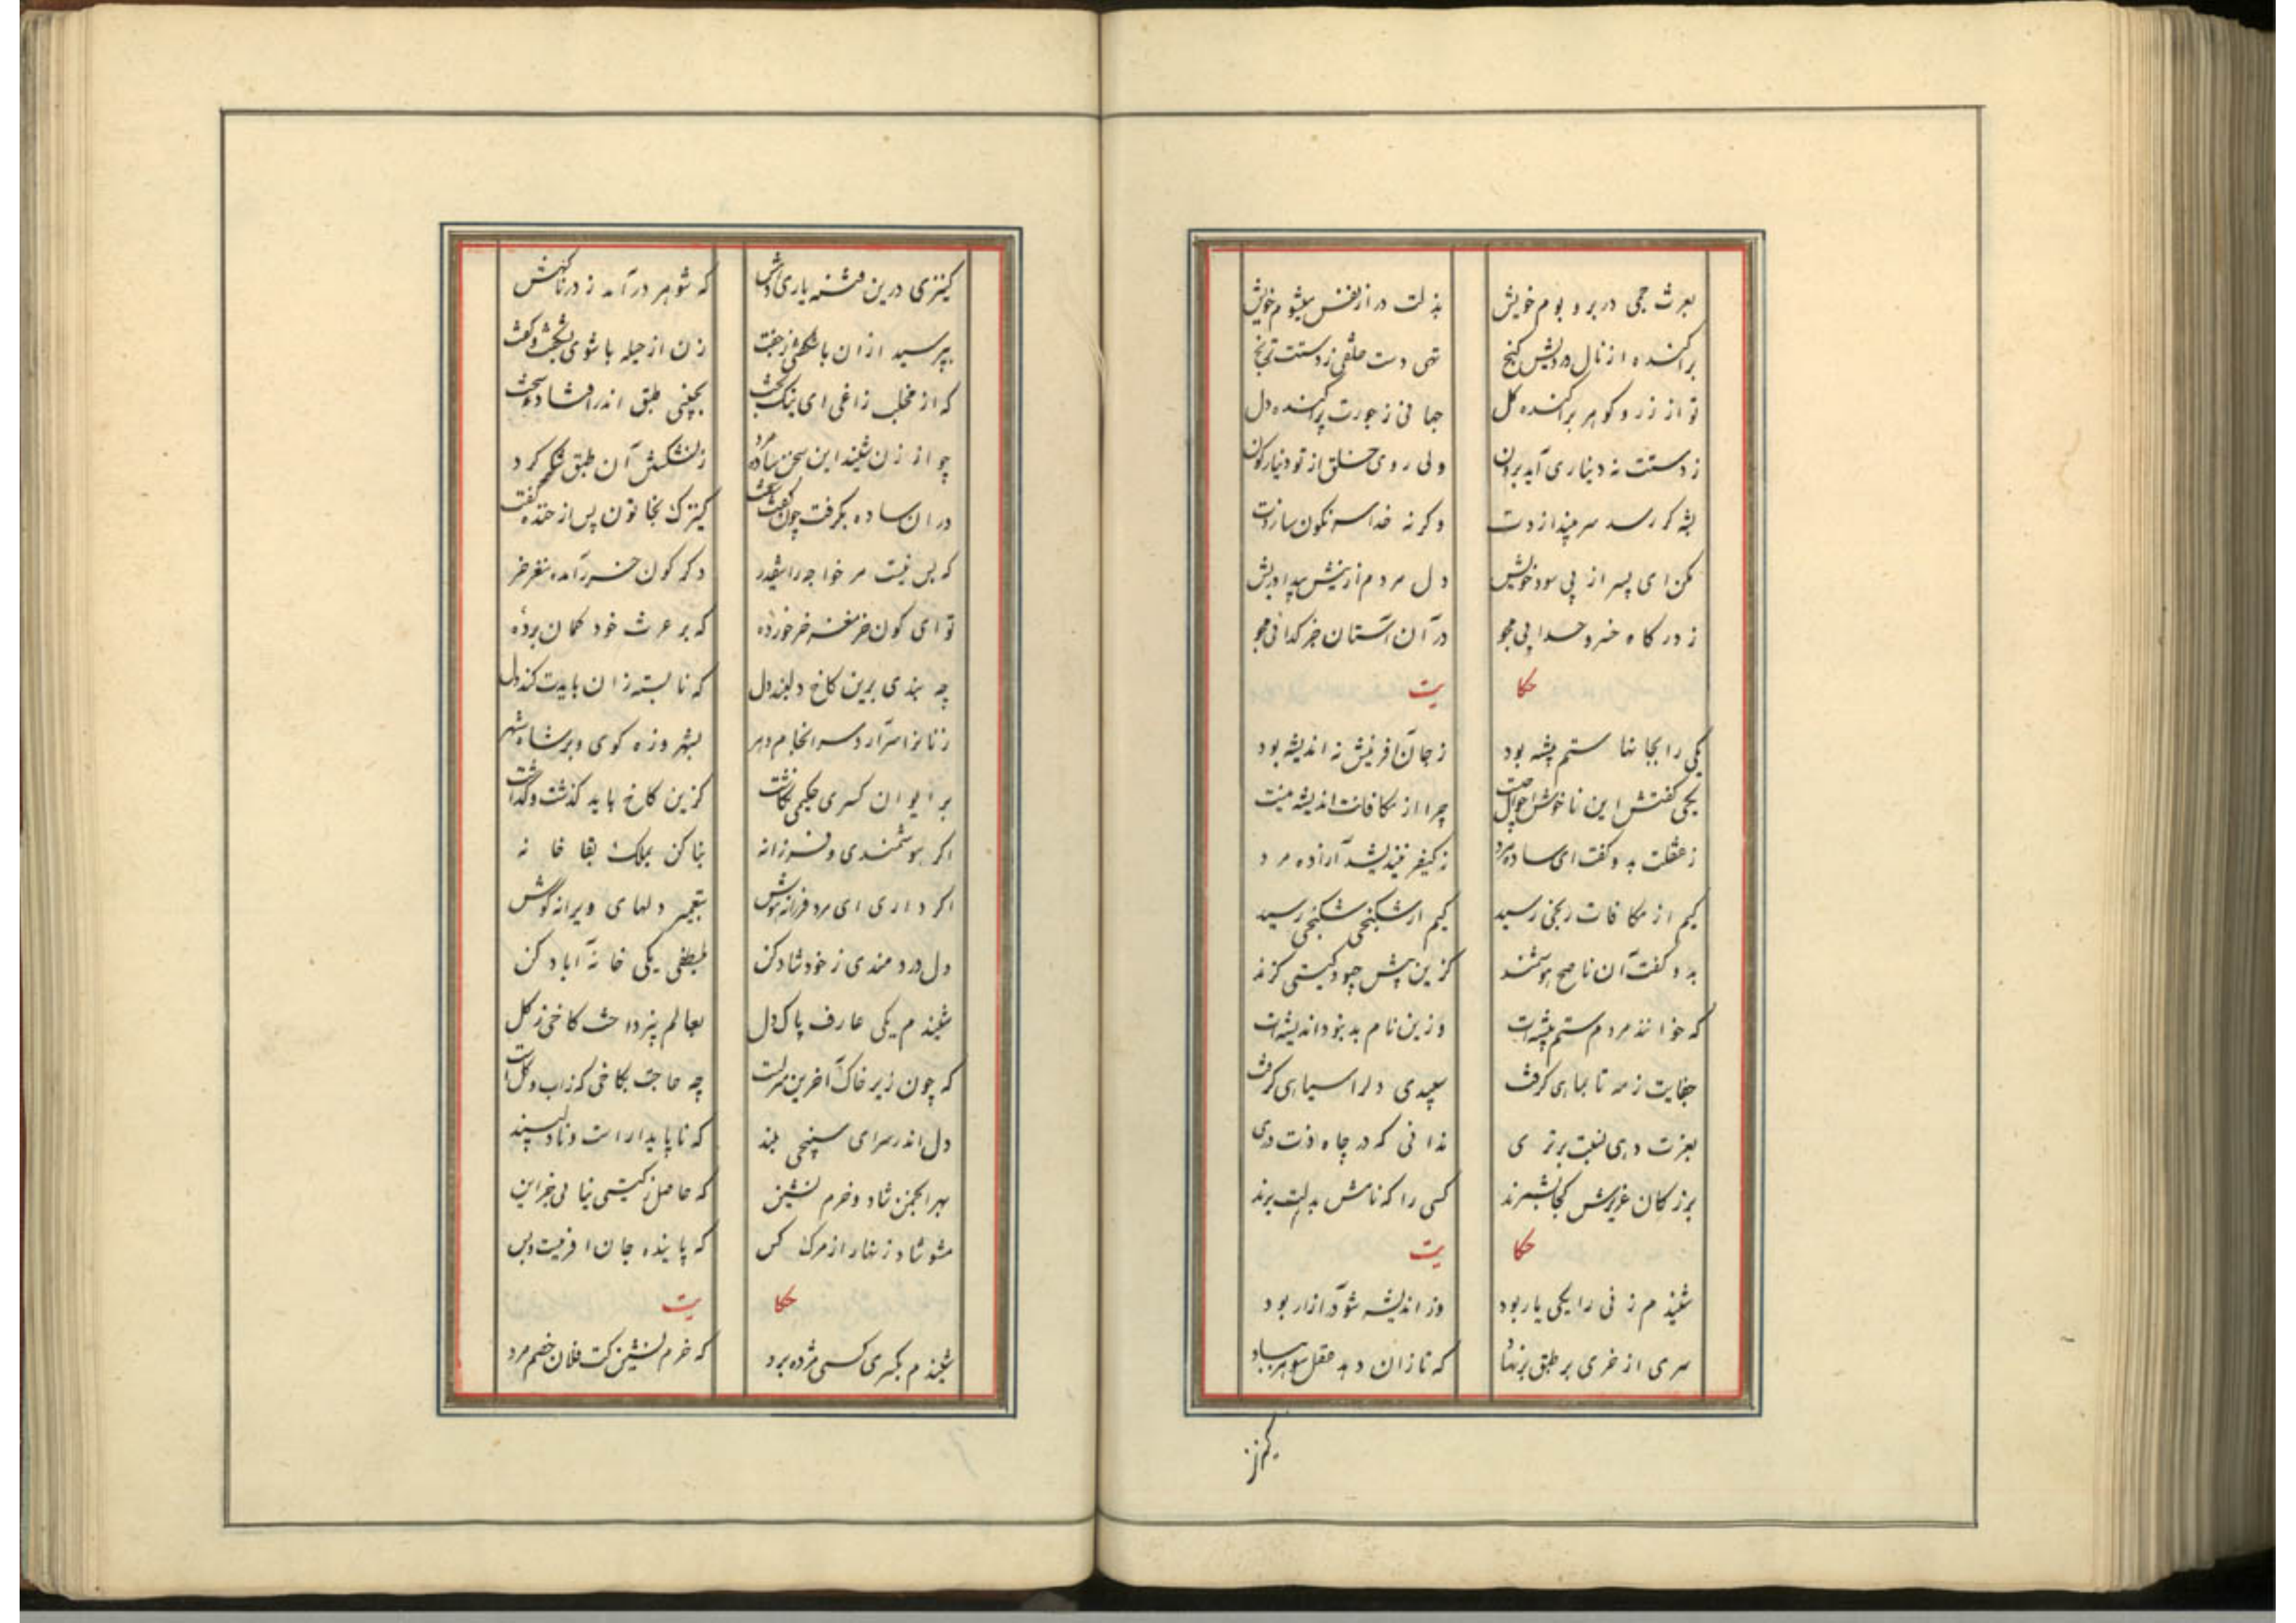 بعرش جمی در بر و بوم خویش بذلت در از نفس میشوم خویش
براکنده از نال درویش کنج تهی دست خلقی ز دستت برنج
تو از زر و کوهر براکنده کل جهانی ز جورت پراکنده دل
ز دستت نه دیناری آید برون ولی روی خلق از تو دینارکون
بشکر رسد سر مپیچ از دوست وکرنه خدا سرنکون سازدت
مکن ای پسر از پی سود خویش دل مردم از نیش بیداد ریش
ز درکاه خسرو خدایی مجو در آن آستان جز کدائی مجو
حکا یت
یکی را بجانها ستم پیشه بود ز جان آفرینش نه اندیشه بود
یکی کفتش این ناخوش احوال چیست چرا از مکافات اندیشه نیست
ز غفلت بدو کفت ای ساده مرد ز کیفر نیندیشد آزاده مرد
کیم از مکافات رنجی رسید کیم از شکنجی شکنجی رسید
بدو کفت آن ناصح هوشمند کزین بیش چبود کیتی کزند
که خوانند مردم ستم پیشه ات وزین نام بد نبود اندیشه ات
جفایت ز مه تا بماهی کرفت سپیدی دلرا سیاهی کرفت
بعزت دهی نسبت برتری ندانی که در چاه ذلت دری
بزرکان عزیزش کجا بشمرند کسی را که نامش بذلت برند
حکا یت
شنیدم زنی را یکی یار بود وز اندیشه شو در آزار بود
سری از خری بر طبق برنهاد که تا زان دهد عقل شوهر بباد
کنیز
کنیزی درین فتنه یاری داش که شوهر درآمد ز در ناکهش
بپرسید ازان باشکفتی ز جفت زن از حیله با شوی بکشت و کفت
که از مخلب زاغی ای نیکبخت بچینی طبق اندر افتاد سخت
چو از زن شنید این سخن ساده مرد ز نشکستن آن طبق شکر کرد
در ان ساده بکرفت چون کفت کنیزک بخاتون پس از خنده کفت
که بس نیست مر خواجه را اینقدر دکر کون خر آمده مغز خر
تو ای کون خر مغز خر خورده که بر عرش خود کمان برده
چه بندی برین کاخ دلبند دل که نابسته زان بایدت کند دل
ز ناز سرآرد سرانجام دهر بشهر و زه کوی و بر شاه شهر
بر ایوان کسری حکیمی نکاشت کزین کاخ باید کذشت و کذاشت
اکر هوشمندی و فرزانه بنا کن بملک بقا خانه
اکر داری ای مرد فرزانه هوش بتعمیر دلهای ویرانه کوش
دل دردمندی ز خود شاد کن بلطفی یکی خانه آباد کن
شنیدم یکی عارف پاک دل بعالم نپرداخت کاخی ز کل
که چون زیر خاک آخرین منزلست چه حاجت بکاخی که ز اب و کل است
دل اندر سرای سپنجی مبند که ناپایدار است و نادلپسند
بهر انجمن شاد و خرم نشین که حاصل ز کیتی نیابی جز این
مشو شاد زنهار از مرک کس که پاینده جان آفرینست و بس
حکا یت
شنیدم بکسری کسی مژده برد که خرم نشین کت فلان خصم مرد